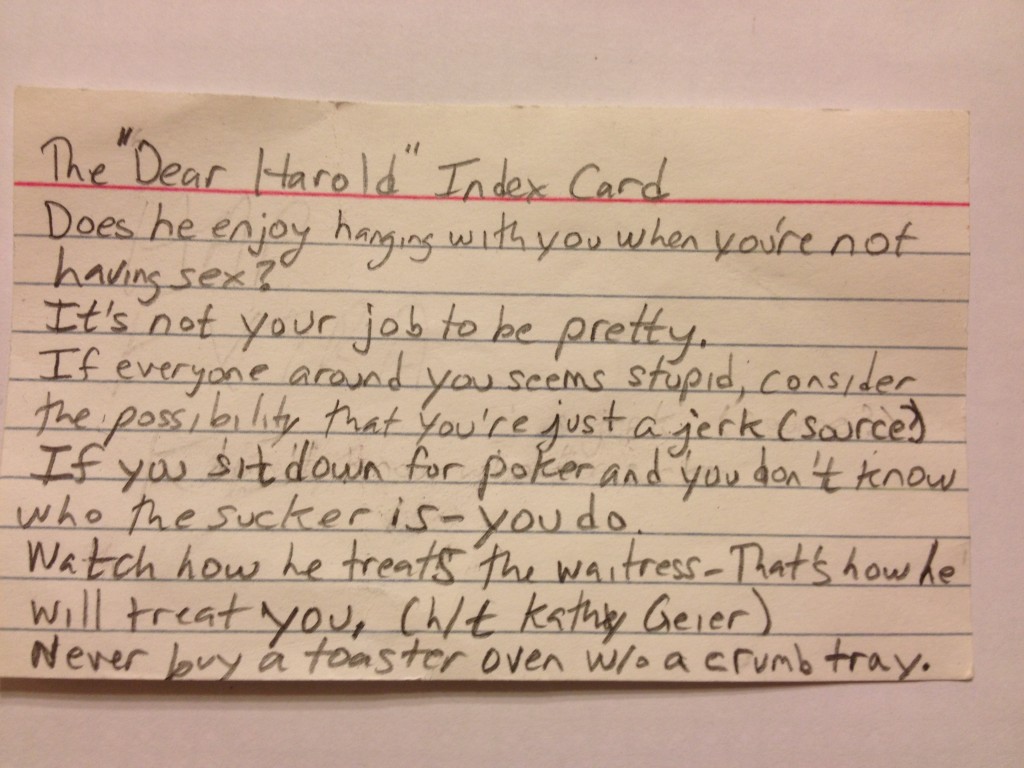 The "Dear Harold" Index Card
Does he enjoy hanging with you when you're not
having sex?
It's not your job to be pretty.
If everyone around you seems stupid, consider
the possibility that you're just a jerk (source?)
If you sit down for poker and you don't know
who the sucker is-you do.
Watch how he treats the waitress-That's how he
will treat you. (h/t Kathy Geier)
Never buy a toaster oven w/o a crumb tray.